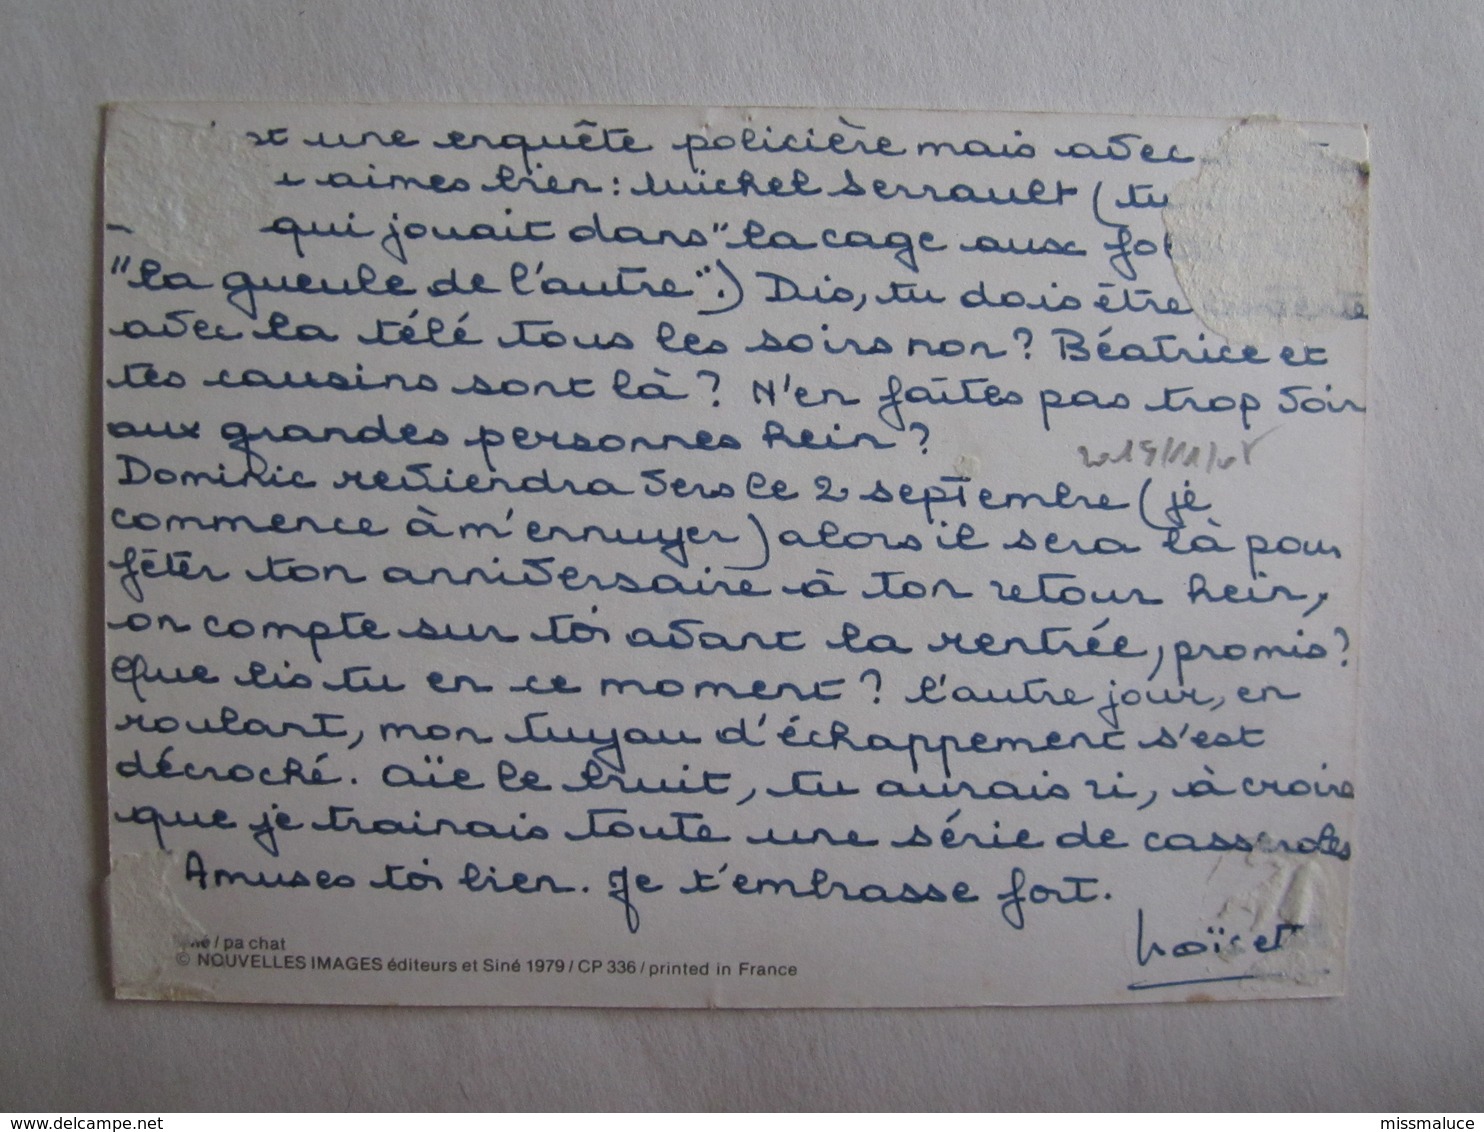 une enquête policière mais avec
aimes bien : Michel Serrault (tu
qui jouait dans "la cage aux fol
"la gueule de l'autre".) Dis, tu dois être
avec la télé tous les soirs non ? Béatrice et
tes cousins sont là ? N'en faîtes pas trop voir
aux grandes personnes hein ?
Dominic reviendra vers le 2 septembre (je
commence à m'ennuyer) alors il sera là pour
fêter ton anniversaire à ton retour hein,
on compte sur toi avant la rentrée, promis ?
Que lis tu en ce moment ? L'autre jour, en
roulant, mon tuyau d'échappement s'est
décroché. Aïe le bruit, tu aurais ri, à croire
que je trainais toute une série de casseroles
Amuses toi bien. Je t'embrasse fort.
/ pa chat
© NOUVELLES IMAGES éditeurs et Siné 1979 / CP 336 / printed in France
delcampe.net
missmaluce